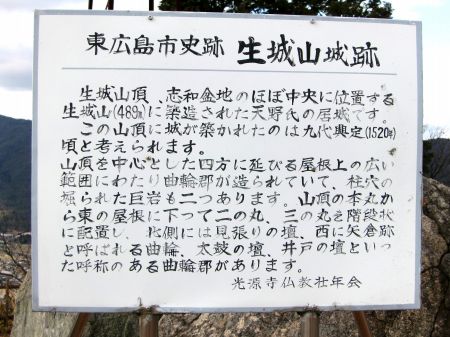 東広島市史跡 生城山城跡
生城山頂、志和盆地のほぼ中央に位置する
生城山(489m)に築造された天野氏の居城です。
この山頂に城が築かれたのは九代興定(1520年)
頃と考えられます。
山頂を中心とした四方に延びる屋根上の広い
範囲にわたり曲輪郡が造られていて、柱穴の
掘られた巨岩も二つあります。山頂の本丸か
ら東の屋根に下って二の丸、三の丸を階段状
に配置し、北側には見張りの壇、西に矢倉跡
と呼ばれる曲輪、太鼓の壇、井戸の壇といっ
た呼称のある曲輪郡があります。
光源寺仏教壮年会